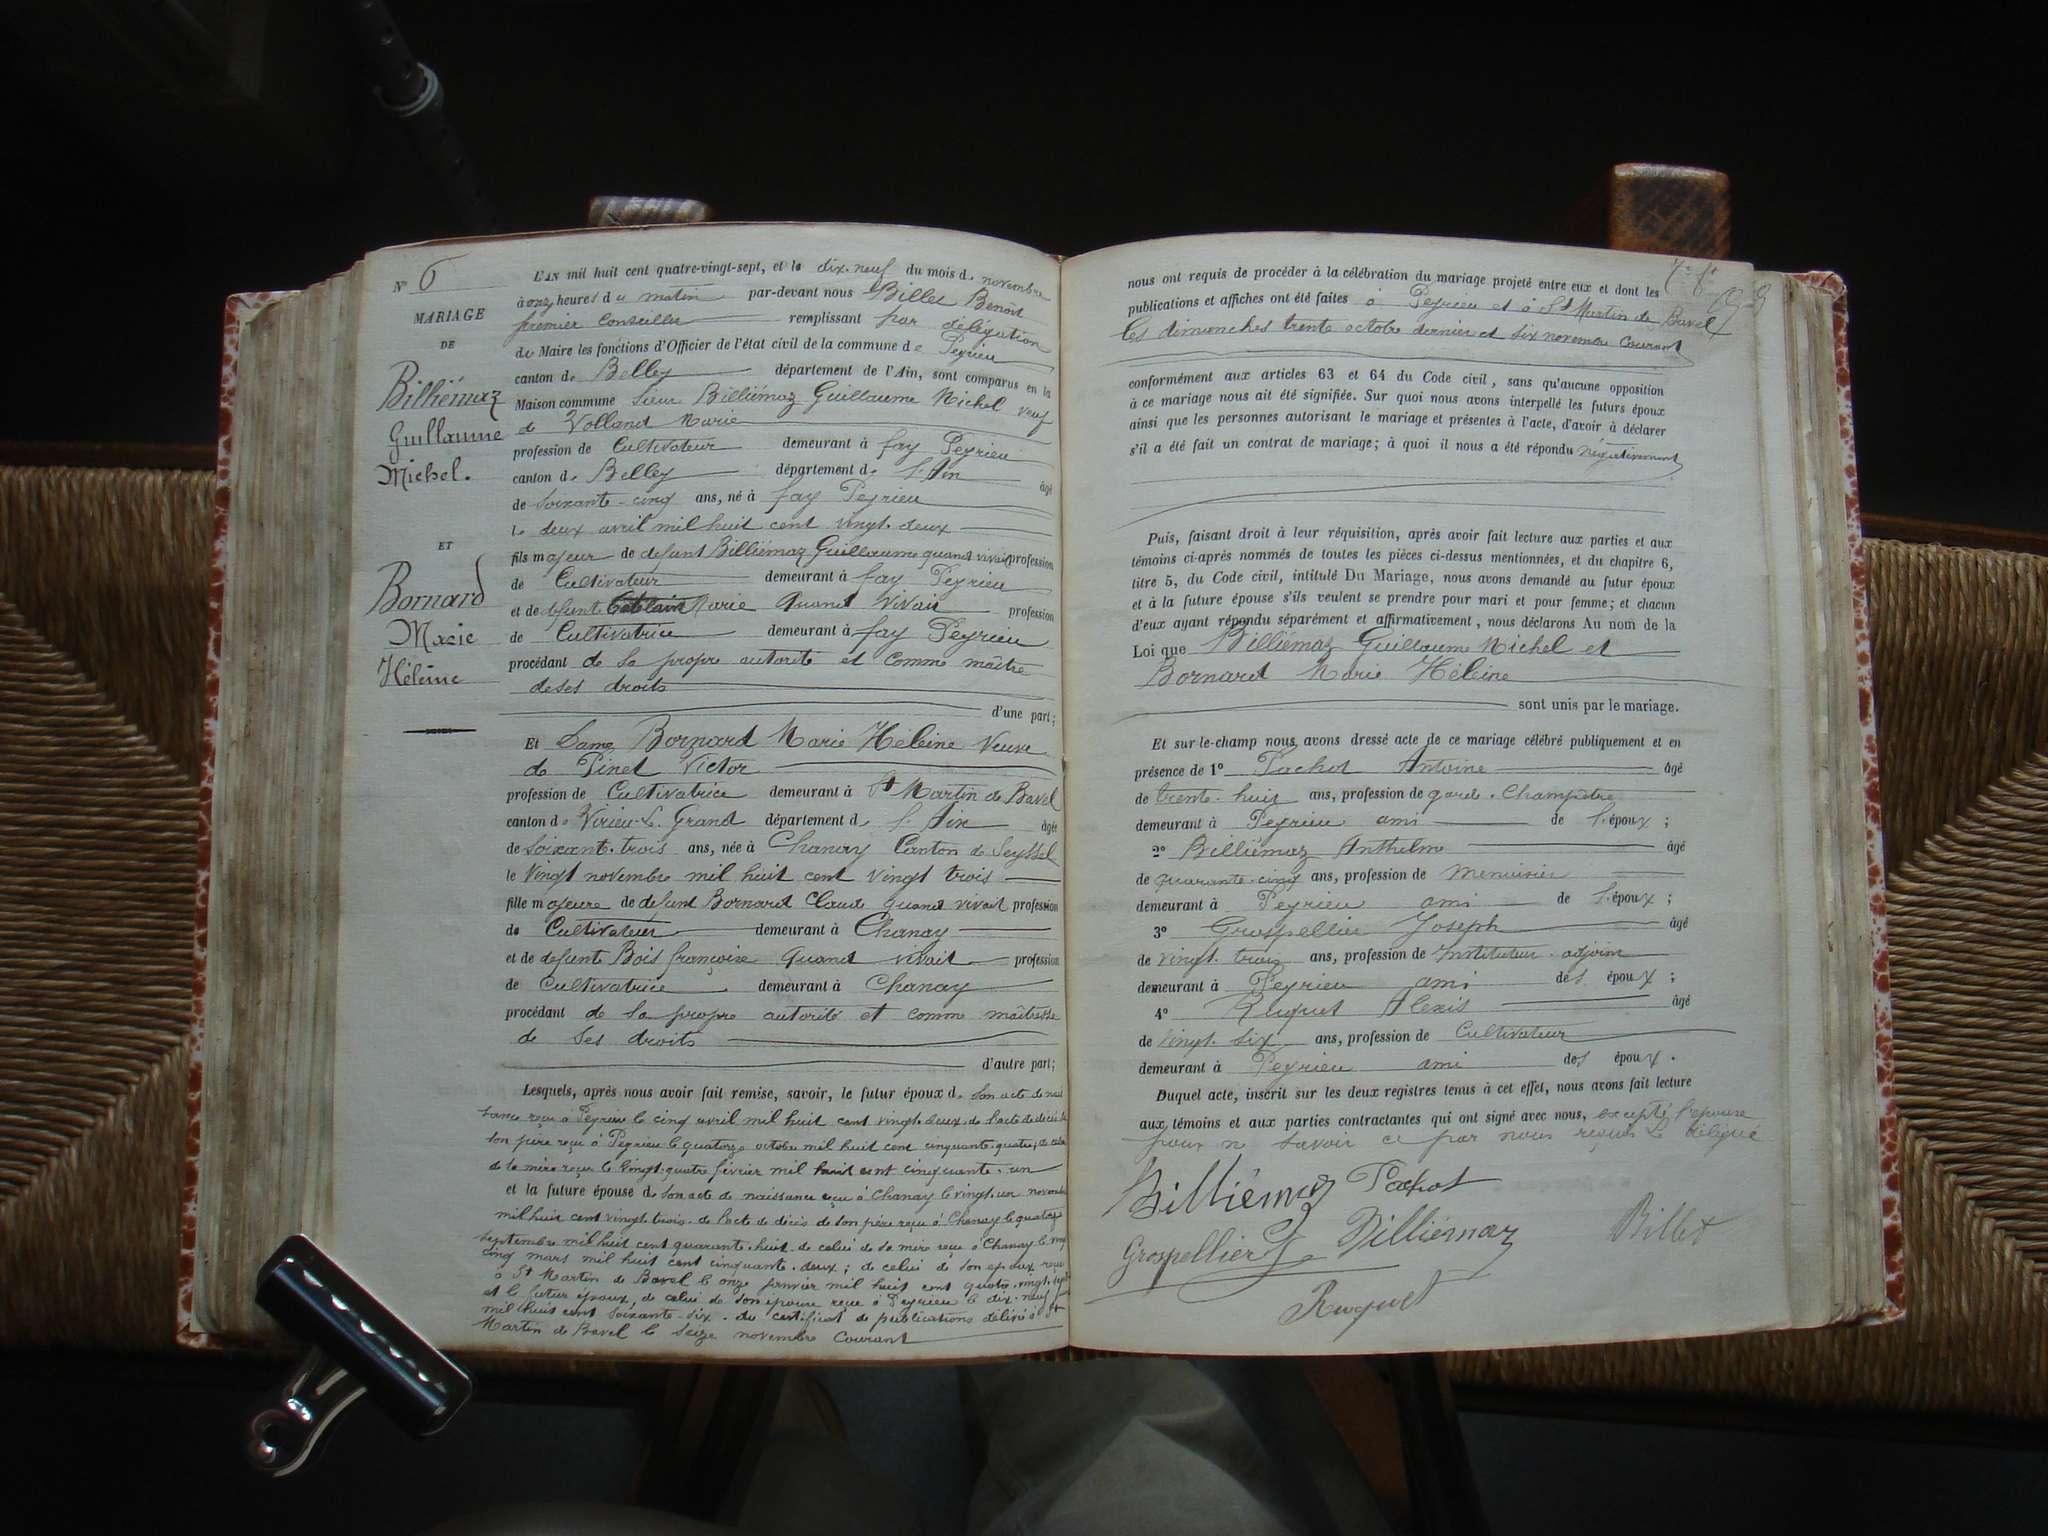 N° 6
MARIAGE
DE
Billiémaz
Guillaume
Michel.
ET
Bornard
Marie
Héleine
L'AN mil huit cent quatre-vingt-sept, et le dix-neuf du mois de novembre
à onze heures du matin par-devant nous Billet Benoît
premier Conseiller remplissant par délégation
du Maire les fonctions d'Officier de l'état civil de la commune de Peyrieu
canton de Belley département de l'Ain, sont comparus en la
Maison commune Sieur Billiémaz Guillaume Michel veuf
de Volland Marie
profession de Cultivateur demeurant à fay Peyrieu
canton de Belley département de l'Ain âgé
de soixante-cinq ans, né à fay Peyrieu
le deux avril mil huit cent vingt-deux
fils majeur de defunt Billiémaz Guillaume quand vivait profession
de Cultivateur demeurant à fay Peyrieu
et de defunte Marie Quand vivait profession
de Cultivatrice demeurant à fay Peyrieu
procédant de sa propre autorité et comme maître
de ses droits
d'une part;
Et Dame Bornard Marie Héleine Veuve
de Pinet Victor
profession de Cultivatrice demeurant à St Martin de Bavel
canton de Virieu-L. Grand département de l'Ain âgée
de soixante-trois ans, née à Chanay Canton de Seyssel
le vingt novembre mil huit cent vingt trois
fille majeure de defunt Bornard Claude Quand vivait profession
de Cultivateur demeurant à Chanay
et de defunte Bois françoise Quand vivait profession
de Cultivatrice demeurant à Chanay
procédant de sa propre autorité et comme maîtresse
de ses droits
d'autre part;
Lesquels, après nous avoir fait remise, savoir, le futur époux de son acte de nais
sance reçu à Peyrieu le cinq avril mil huit cent vingt-deux. de l'acte de décès de
son père reçu à Peyrieu le quatorze octobre mil huit cent cinquante-quatre, de celui
de sa mère reçu le vingt-quatre février mil huit cent cinquante-un
et la future épouse de son acte de naissance reçu à Chanay le vingt-un novembre
mil huit cent vingt-trois. de l'acte de décès de son père reçu à Chanay le quatorze
septembre mil huit cent quarante-huit. de celui de sa mère reçu à Chanay le vingt
cinq mars mil huit cent cinquante-deux; de celui de son époux reçu
à St Martin de Bavel le onze janvier mil huit cent quatre-vingt-sept
et le futur époux, de celui de son épouse reçu à Peyrieu le dix-neuf
mil huit cent soixante-six. du certificat de publications délivré à St
Martin de Bavel le seize novembre courant
nous ont requis de procéder à la célébration du mariage projeté entre eux et dont les
publications et affiches ont été faites à Peyrieu et à St Martin de Bavel
les dimanches trente octobre dernier et six novembre courant
conformément aux articles 63 et 64 du Code civil, sans qu'aucune opposition
à ce mariage nous ait été signifiée. Sur quoi nous avons interpellé les futurs époux
ainsi que les personnes autorisant le mariage et présentes à l'acte, d'avoir à déclarer
s'il a été fait un contrat de mariage; à quoi il nous a été répondu négativement
Puis, faisant droit à leur réquisition, après avoir fait lecture aux parties et aux
témoins ci-après nommés de toutes les pièces ci-dessus mentionnées, et du chapitre 6,
titre 5, du Code civil, intitulé Du Mariage, nous avons demandé au futur époux
et à la future épouse s'ils veulent se prendre pour mari et pour femme; et chacun
d'eux ayant répondu séparément et affirmativement, nous déclarons Au nom de la
Loi que Billiémaz Guillaume Michel et
Bornard Marie Héleine
sont unis par le mariage.
Et sur-le-champ nous avons dressé acte de ce mariage célébré publiquement et en
présence de 1° Pachot Antoine âgé
de trente-huit ans, profession de garde-Champêtre
demeurant à Peyrieu ami de l'époux;
2° Billiémaz Anthelme âgé
de quarante-cinq ans, profession de Menuisier
demeurant à Peyrieu ami de l'époux;
3° Grospellier Joseph âgé
de vingt-trois ans, profession de Instituteur-adjoint
demeurant à Peyrieu ami des époux;
4° Ruquet Alexis âgé
de vingt-six ans, profession de Cultivateur
demeurant à Peyrieu ami des époux.
Duquel acte, inscrit sur les deux registres tenus à cet effet, nous avons fait lecture
aux témoins et aux parties contractantes qui ont signé avec nous, excepté l'épouse
pour ne savoir ce par nous requis Le délégué
Billiémaz Pachot
Grospellier J. Billiémaz Billet
Ruquet